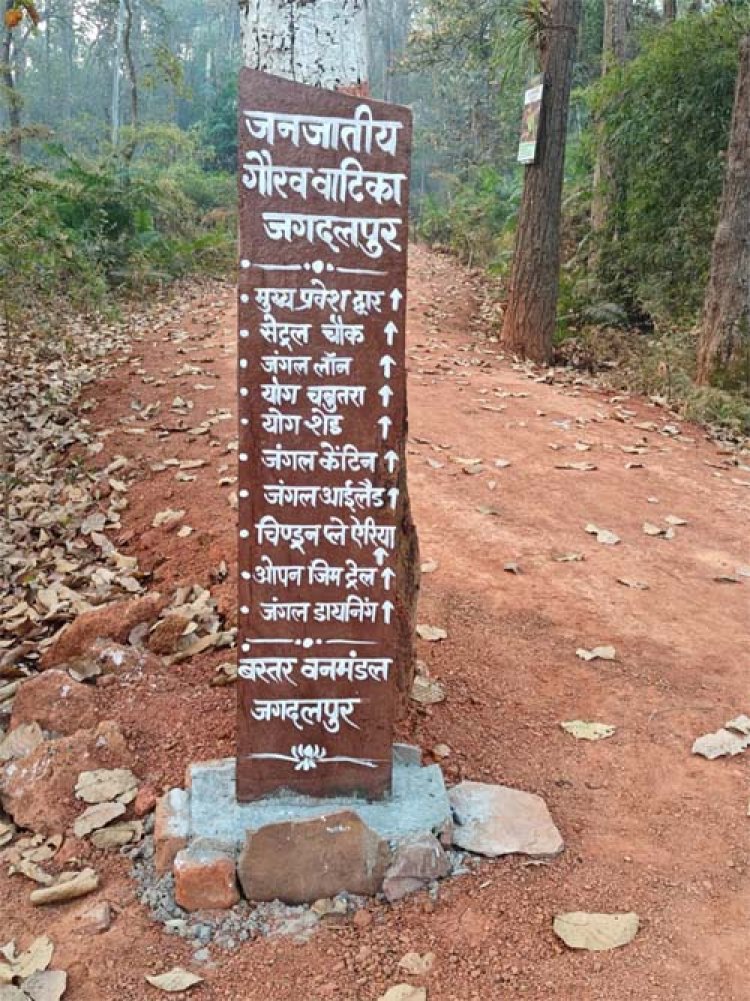 जनजातीय
गौरव वाटिका
जगदलपुर
• मुख्य प्रवेश द्वार ↑
• सेंट्रल चौक ↑
• जंगल लॉन ↑
• योग चबुतरा ↑
• योग शेड ↑
• जंगल केंटिन ↑
• जंगल आईलैड ↑
• चिल्ड्रन प्ले ऐरिया ↑
• ओपन जिम ट्रेल ↑
• जंगल डायनिंग ↑
बस्तर वनमंडल
जगदलपुर